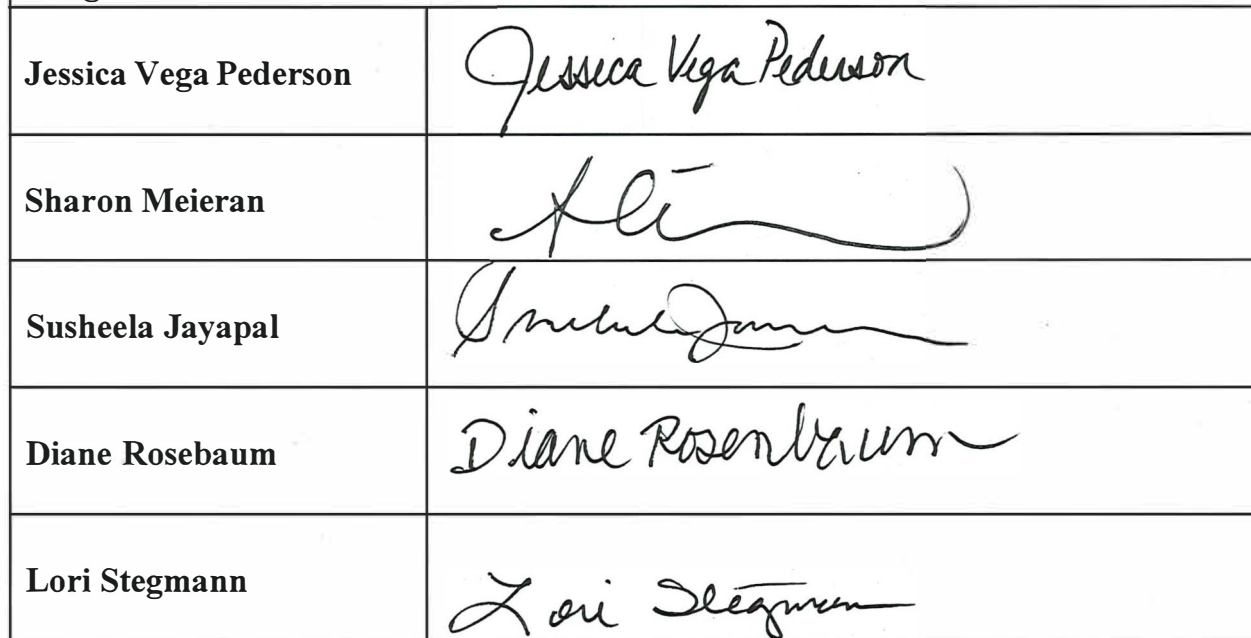 Jessica Vega Pederson Jessica Vega Pederson
Sharon Meieran
Susheela Jayapal
Diane Rosebaum Diane Rosenbaum
Lori Stegmann Lori Stegmann